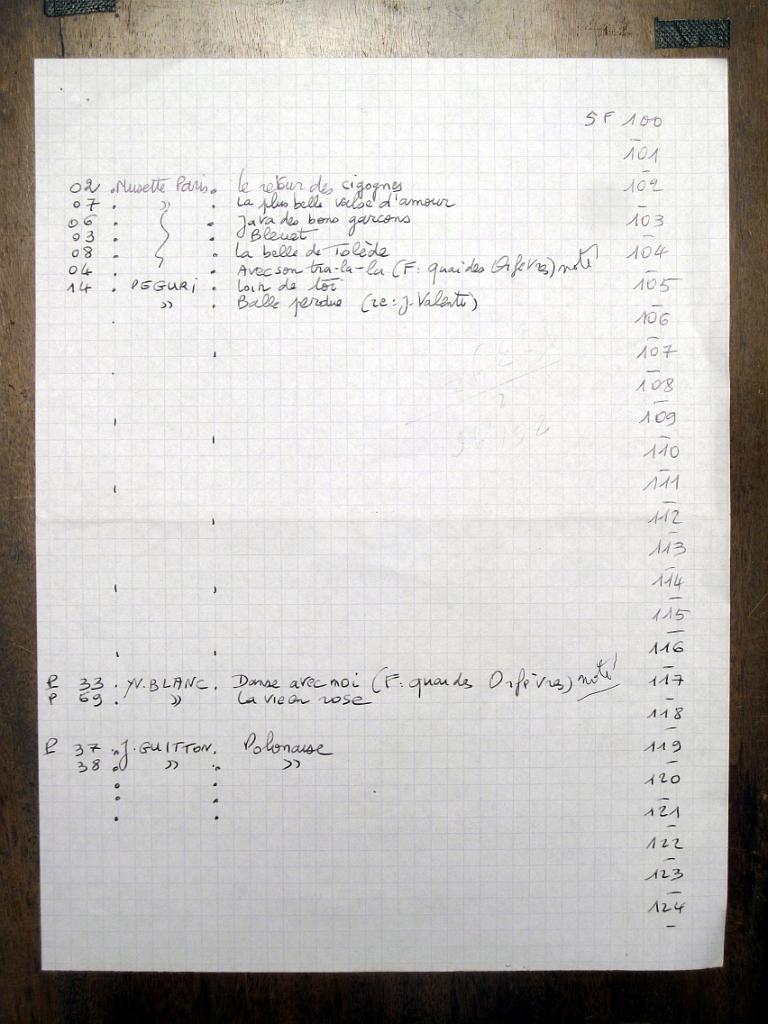 SF 100
101
02 . Musette Paris . le retour des cigognes 102
07 . » . La plus belle valse d'amour
06 . . Java des bons garçons 103
03 . . Bleuet
08 . . La belle de Tolède 104
04 . . Avec son tra-la-la (F: quai des Orfèvres) noté
14 . PEGURI . Loin de toi 105
» . Balle perdue (re: J. Valenti)
106
107
108
109
110
111
112
113
114
115
116
P 33 . YV. BLANC . Danse avec moi (F: quai des Orfèvres) noté! 117
P 69 . » La vie en rose
118
P 37 . J. GUITTON . Polonaise 119
38 . » . »
120
121
122
123
124